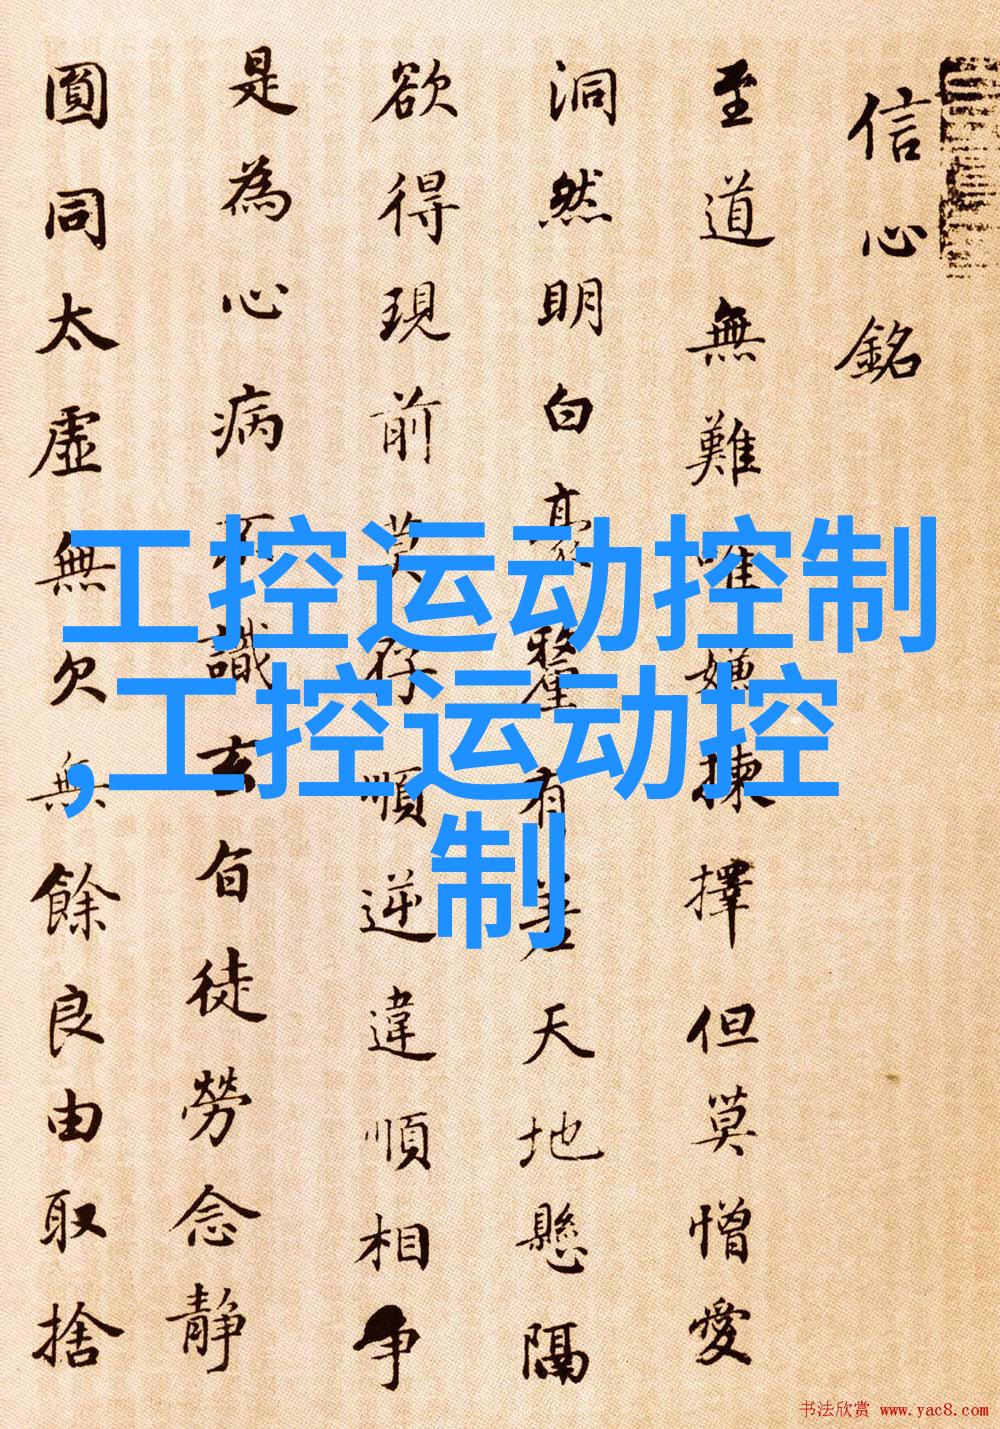 信心銘
至道無難唯嫌揀擇但莫憎愛
洞然明白毫釐有差天地懸隔
欲得現前莫存順逆違順相争
是為心病不識玄旨徒勞念静
圓同太虛無欠無餘良由取捨
工控运动控制
,工控运动控
制
书法欣赏 www.yac8.com